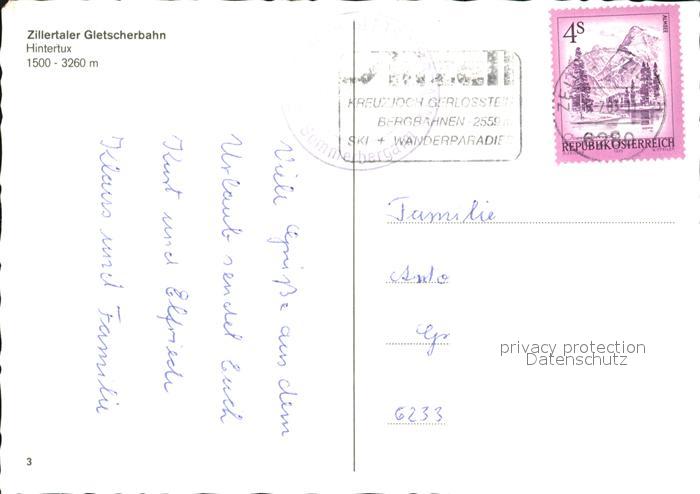 Zillertaler Gletscherbahn
Hintertux
1500 - 3260 m
Viele Grüße aus dem
Urlaub sendet Euch
Kurt und Elfriede
Klaus und Familie
KREUZJOCH GERLOSSTEIN
BERGBAHNEN 2559
SKI + WANDERPARADIES
Sommerbergalm
4S
ALMSEE
6280
REPUBLIK ÖSTERREICH
Familie
6233
privacy protection
Datenschutz
3